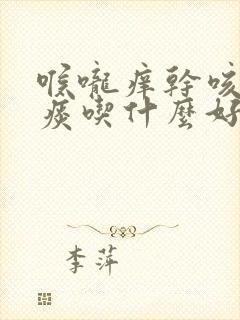 喉嚨痒幹咳
痰喫什麼好
李萍